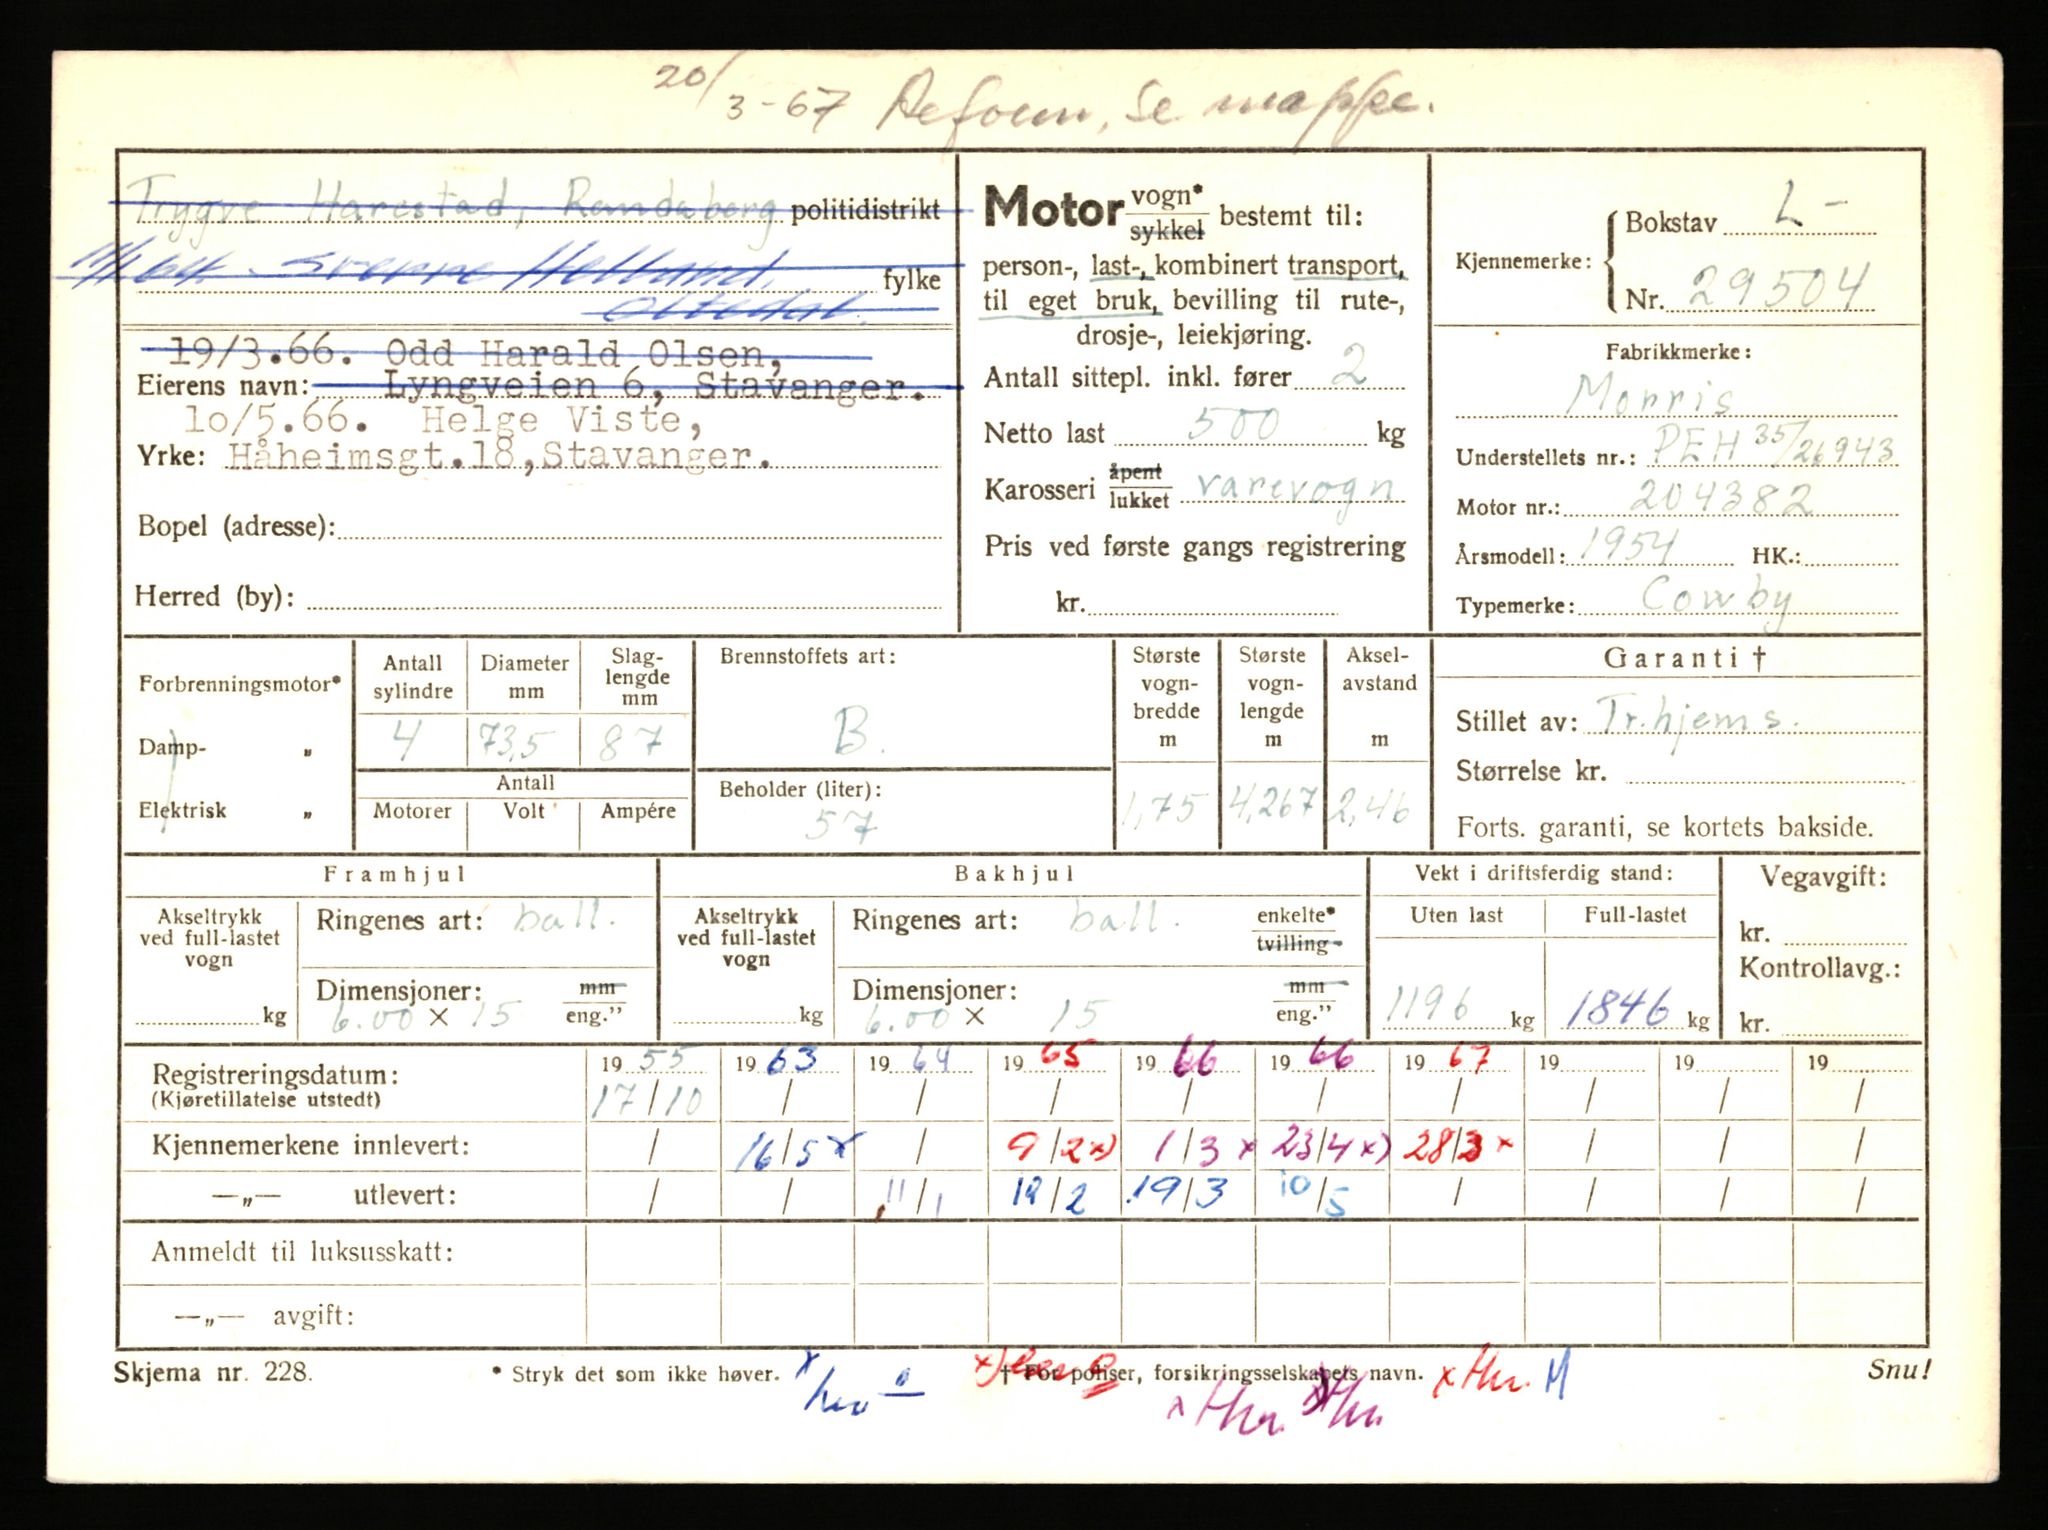 20/3-67 Deform, se mappe.
Trygve Harestad, Randaberg politidistrikt
11/1 64. Sverre Helland, fylke
Oltedal.
19/3.66. Odd Harald Olsen,
Eierens navn: Lyngveien 6, Stavanger.
10/5.66. Helge Viste,
Yrke: Håheimsgt.18,Stavanger.
Bopel (adresse):
Herred (by):
Motor vogn* sykkel bestemt til:
person-, last-, kombinert transport,
til eget bruk, bevilling til rute-,
drosje-, leiekjøring.
Antall sittepl. inkl. fører 2
Netto last 500 kg
Karosseri åpent lukket varevogn
Pris ved første gangs registrering
kr.
Kjennemerke: Bokstav L-
Nr. 29504
Fabrikkmerke:
Morris
Understellets nr.: PEH 35/26943
Motor nr.: 204382
Årsmodell: 1954 HK.:
Typemerke: Cowby
Forbrenningsmotor*
Damp- „
Elektrisk „
Antall sylindre 4
Diameter mm 73,5
Slag-lengde mm 87
Antall
Motorer Volt Ampére
Brennstoffets art:
B.
Beholder (liter):
57
Største vogn-bredde m 1,75
Største vogn-lengde m 4,267
Aksel-avstand m 2,46
Garanti †
Stillet av: Tr.hjems.
Størrelse kr.
Forts. garanti, se kortets bakside.
Framhjul
Akseltrykk ved full-lastet vogn kg
Ringenes art: ball.
Dimensjoner: mm
6.00 × 15 eng.”
Bakhjul
Akseltrykk ved full-lastet vogn kg
Ringenes art: ball. enkelte* tvilling-
Dimensjoner: mm
6.00 × 15 eng.”
Vekt i driftsferdig stand:
Uten last Full-lastet
1196 kg 1846 kg
Vegavgift:
kr.
Kontrollavg.:
kr.
Registreringsdatum: 19 55 19 63 19 64 19 65 19 66 19 66 19 67 19 19 19
(Kjøretillatelse utstedt) 17/10 / / / / / / / / /
Kjennemerkene innlevert: / 16/5 x / 9/2 x) 1/3 x 23/4 x) 28/3 x / / /
—„— utlevert: / / 11/1 12/2 19/3 10/5 / / / /
Anmeldt til luksusskatt:
—„— avgift:
Skjema nr. 228. * Stryk det som ikke høver. † For poliser, forsikringsselskapets navn. Snu!